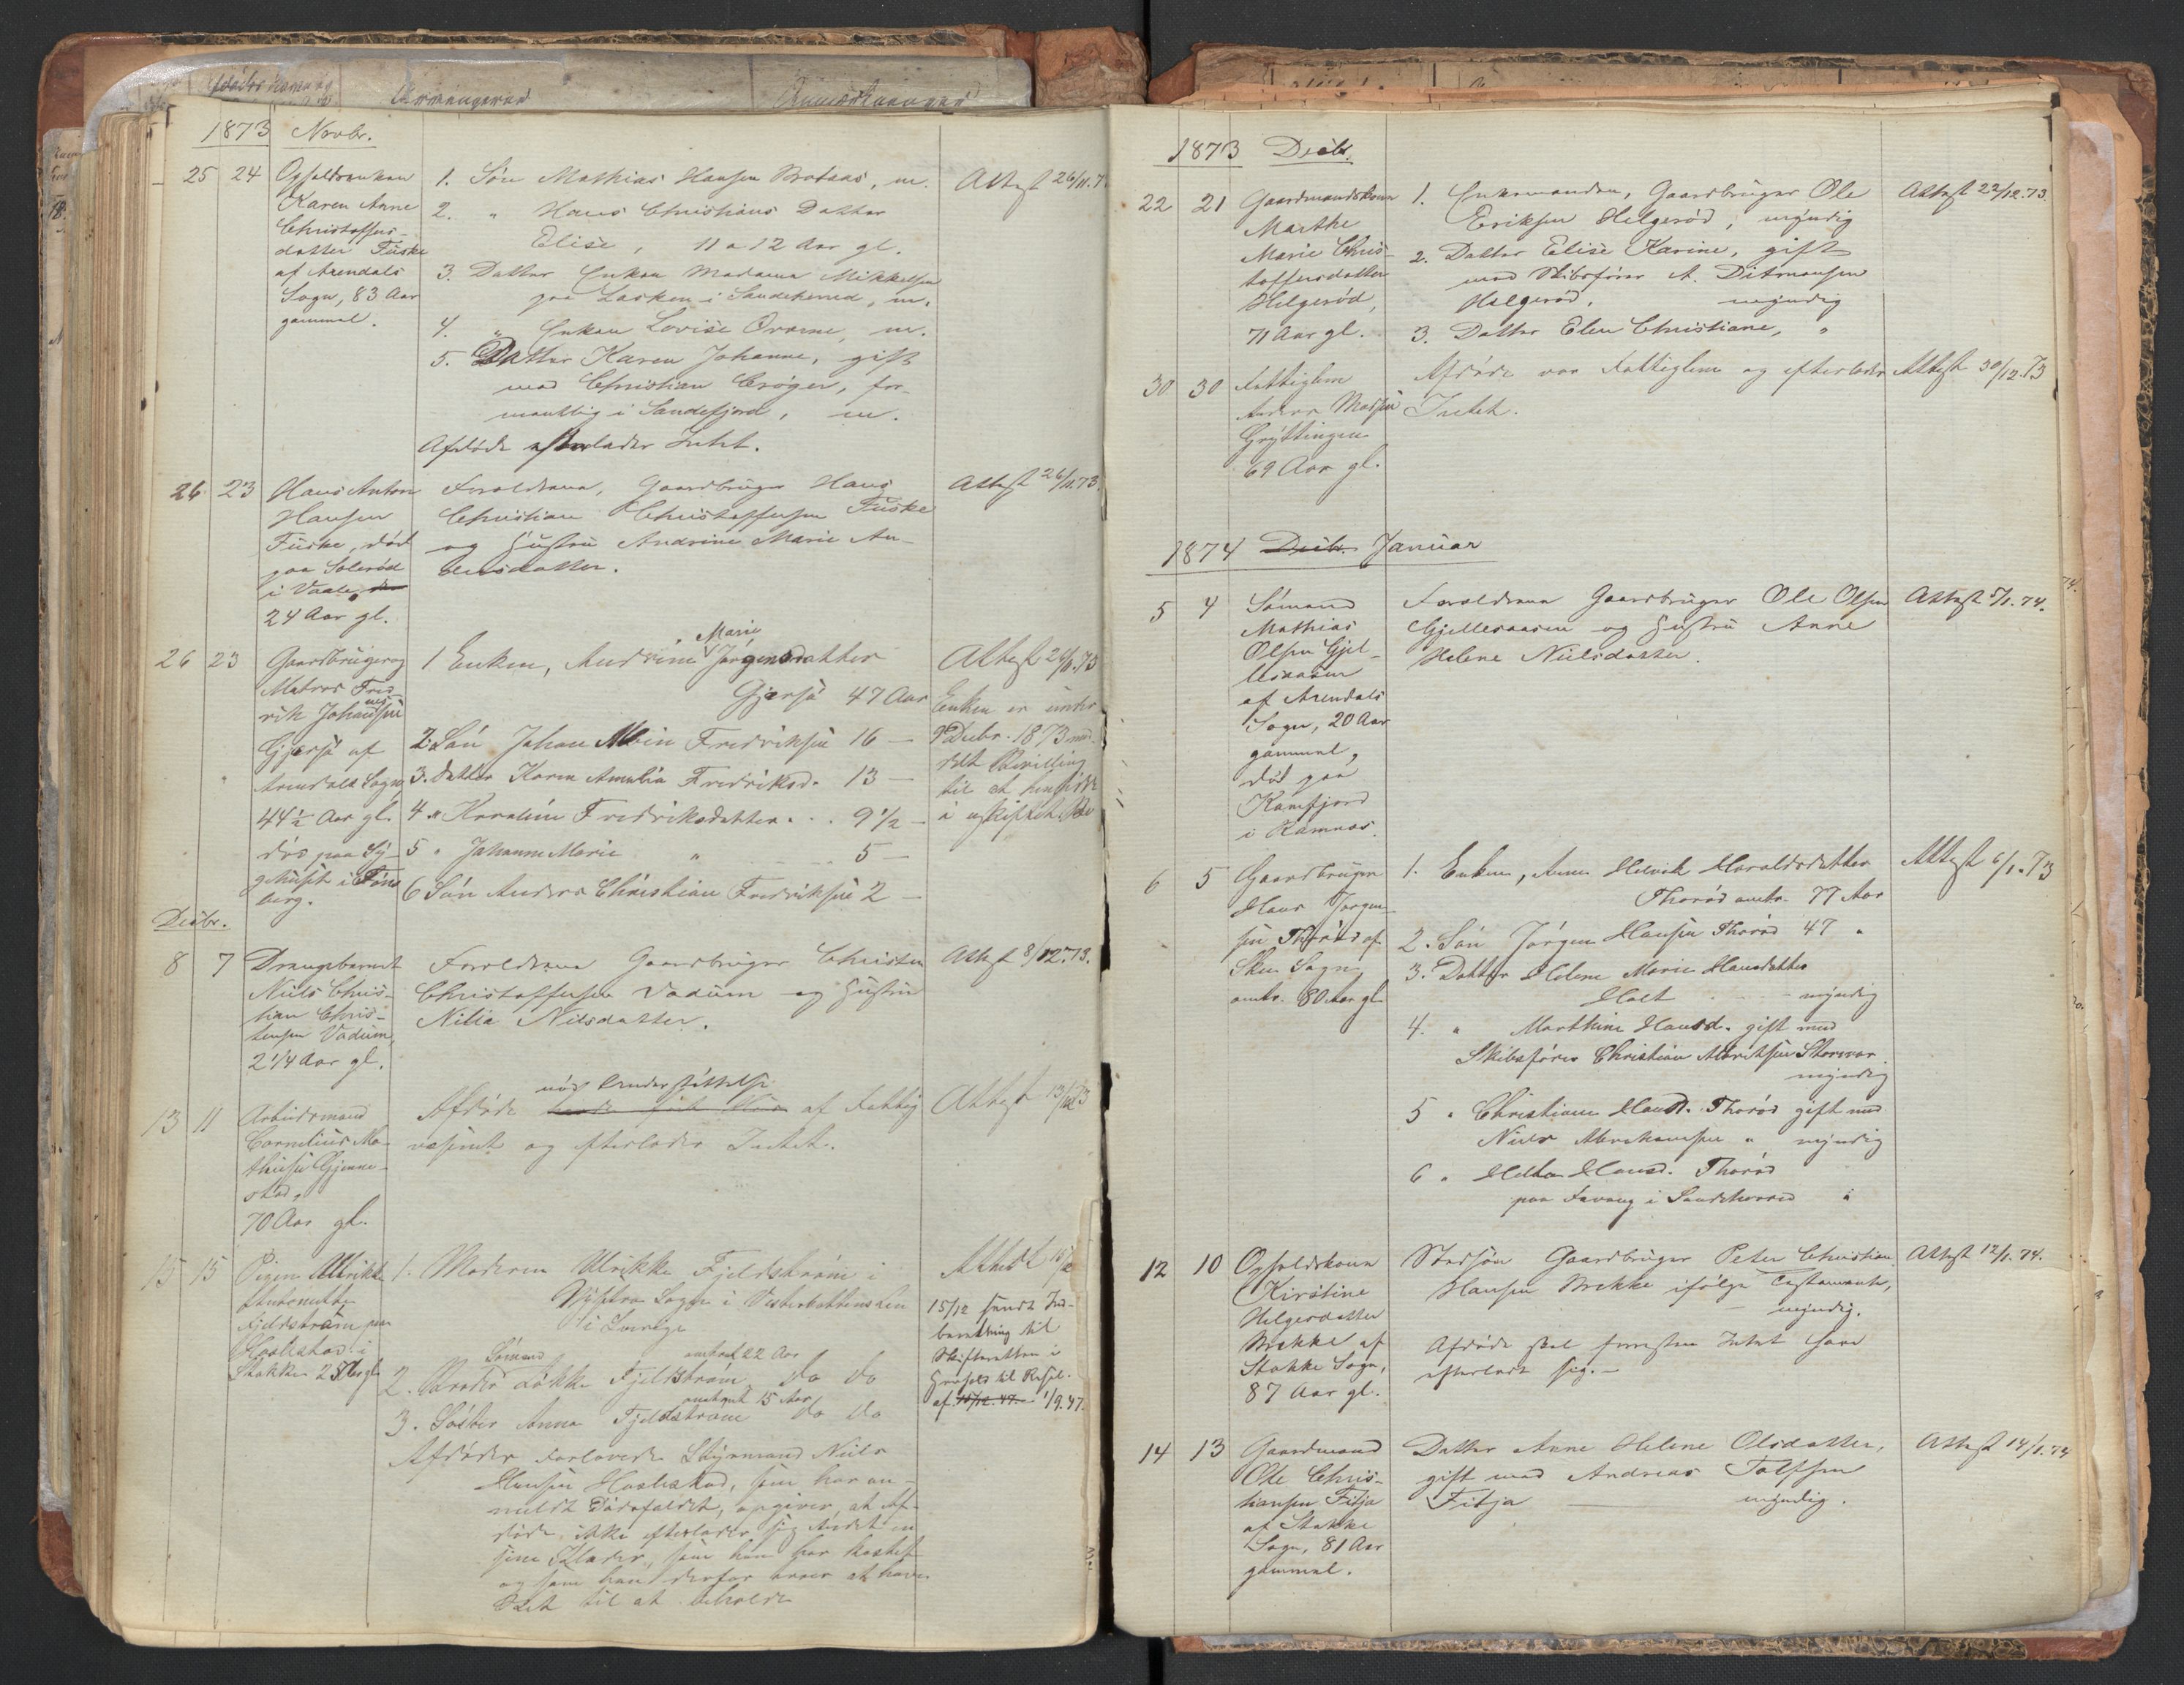 1873 Novbr.
25 24 Opholdsenken
Karen Anne
Christoffers-
datter Fuske
af Arendals
Sogn, 83 Aar
gammel.
1. Søn Mathias Hansen Brataas, m.
2. " Hans Christians Datter
Elise, 11 a 12 Aar gl.
3. Datter Enken Madame Mikkelsen
paa Lasken i Sandeherred, m.
4. " Enken Lovise m.
5. Datter Karen Johanne, gift
med Christian Crøger, for-
mentlig i Sandefjord, m.
Afdøde efterlader Intet.
Attest 26/11.7
26 23 Hans Anton
Hansen
Fuske, død
paa Solerød
i Vaale,
24 Aar gl.
Forældrene, Gaardbruger Hans
Christian Christoffersen Fuske
og Hustru Andrine Marie An-
dersdatter.
Attest 26/11.73.
26 23 Gaardbruger og
Matros Fred-
rik Johannessen
Gjersø af
Arendals Sogn,
44½ Aar gl.
død paa Sy-
gehuset i Tøns-
berg.
1. Enken, Andrine Marie Jørgensdatter
Gjersø 47 Aar
2. Søn Johan Albin Fredriksen 16 —
3. Datter Karen Amalia Fredriksd. 13 —
4 " Karoline Fredriksdatter . . . 9 1/2 —
5 " Johanne Marie " 5 —
6 Søn Anders Christian Fredriksen 2 —
Attest 26/11.73
Enken er under
9 Decbr. 1873 med-
delt Bevilling
til at hensidde
i uskiftet Bo
Decbr.
8 7 Drengebarnet
Niels Chris-
tian Chris-
tensen Vadum,
2 1/4 Aar gl.
Forældrene Gaardbruger Christen
Christoffersen Vadum og Hustru
Nilia Nilsdatter.
Attest 8/12.73.
13 11 Arbeidsmand
Cornelius Ma-
thiesen Gjenne-
stad,
70 Aar gl.
nød Understøttelse
Afdøde af Fattig
væsenet og efterlader Intet.
Attest 13/12 73
15 15 Pigen Ulrikke
Fjeldstrøm paa
Haslestad i
Stokke 28 Aar gl
1. Moderen Ulrikke Fjeldstrøm i
Nysätra Sogn i Vesterbottens Len
i Sverige
Sømand omtrent 22 Aar
2. Broder Løkke Fjeldstrøm do do
omtrent 15 Aar
3. Søster Anna Fjeldstrøm do do
Afdødes Forlovede Styrmand Niels
Hansen Haslestad, som har an-
meldt Dødsfaldet, opgiver, at Af-
døde ikke efterlader sig Andet en
sine Klæder, som han har kostet
og som han derfor troer at have
Ret til at beholde
Attest 15/12
15/12 sendt Ind-
beretning til
Skifteretten i
Henhold til Resol.
af 15/12.47. 1/9.47.
1873 Decbr.
22 21 Gaardmandskone
Marthe
Marie Chris-
toffersdatter
Helgerød,
71 Aar gl.
1. Enkemanden, Gaardbruger Ole
Eriksen Helgerød, myndig
2. Datter Elise Karine, gift
med Skibsfører A. Ditmansen
Helgerød, myndig
3. Datter Elen Christiane, "
Attest 22/12.73.
30 30 Fattiglem
Anders Madsen
Gryttingen
69 Aar gl.
Afdøde var Fattiglem og efterlader
Intet.
Attest 30/12.73
1874 Decbr. Januar
5 4 Sømand
Mathias
Olsen Gjel-
lesaasen
af Arendals
Sogn, 20 Aar
gammel,
død paa
Kamfjord
i Ramnes.
Forældrene Gaardbruger Ole Olsen
Gjellesaasen og Hustru Anne
Helene Nielsdatter.
Attest 5/1.74.
6 5 Gaardbruger
Hans Jørgen-
sen Thorød af
Skee Sogn,
omtr. 80 Aar gl.
1. Enken, Anne Helvik Haraldsdatter
Thorød omtr. 77 Aar
2. Søn Jørgen Hansen Thorød 47 "
3. Datter Helene Marie Hansdatter
Holt myndig
4. " Marthine Hansd. gift med
Skibsfører Christian Albretsen Storevar
myndig
5 " Christiane Hansd. Thorød gift med
Niels Abrahamsen " myndig
6 " Hansd. Thorød
paa Framnæs i Sandeherred "
Attest 6/1.73
12 10 Opholdskone
Kirstine
Helgesdatter
Brekke af
Stokke Sogn,
87 Aar gl.
Stedsøn Gaardbruger Peter Christian
Hansen Brekke ifølge Testamente,
— myndig.
Afdøde skal forresten Intet have
efterladt sig. —
Attest 12/1.74.
14 13 Gaardmand
Ole Chris-
tiansen Fitja
af Stokke
Sogn, 81 Aar
gammel.
Datter Anne Helene Olsdatter,
gift med Andreas Tolfsen
Fitja — myndig.
Attest 14/1.74